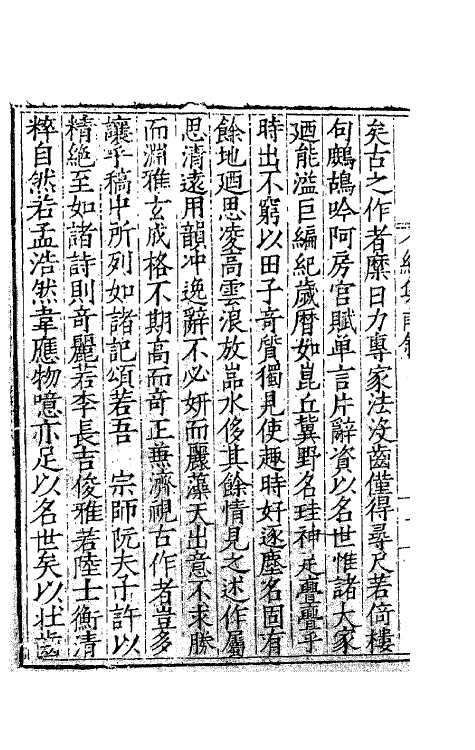 矣古之作者縻日力專家法沒齒僅得尋尺若倚樓
句鷓鴣吟阿房宮賦单言片辭資以名世惟諸大家
廼能溢巨編紀歲曆如崑丘冀野名珪神足亹亹乎
時出不窮以田子竒質獨見使趣時好逐塵名固有
餘地廼思凌高雲浪放嵓水侈其餘情見之述作屬
思清遠用韻冲逸辭不必妍而麗藻天出意不求勝
而淵雅玄成格不期高而竒正兼濟視古作者豈多
讓乎稿中所列如諸記頌若吾 宗師阮夫子許以
精絕至如諸詩則竒麗若李長吉俊雅若陸士衡清
粹自然若孟浩然韋應物噫亦足以名世矣以壯齒